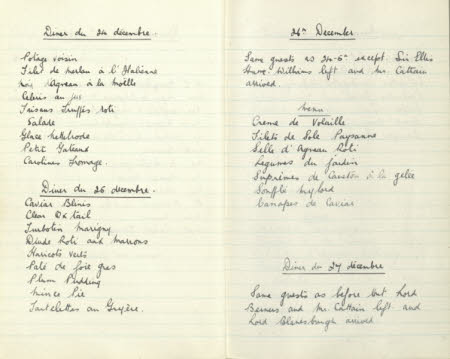 Diner du 24 décembre.
Potage voisin
Filet de merlan à l'Italienne
Agneau à la Moëlle
Celeris au jus
Faisans Truffés roti
Salade
Glace Nesselrode
Petit Gateaux
Carolines fromage.
Diner du 25 décembre.
Caviar Blinis
Clear Ox tail
Turbotin Marigny
Dinde Roti aux Marrons
Haricots verts
Paté de foie gras
Plum Pudding
Mince Pie
Tartelettes au Gruyère.
26th December
Same guests as 24-5th except Sir Ellis
Hume-Williams left and Mr. Cattain
arrived.
Menu
Creme de Volaille
Filets de Sole Paysanne
Selle d'Agneau Roti
Legumes du Jardin
Suprêmes de à la gelée
Soufflé Mylord
Canapes de Caviar
Diner du 27 décembre
Same guests as before but Lord
Berners and Mr. Cattain left and
Lord Blanesburgh arrived